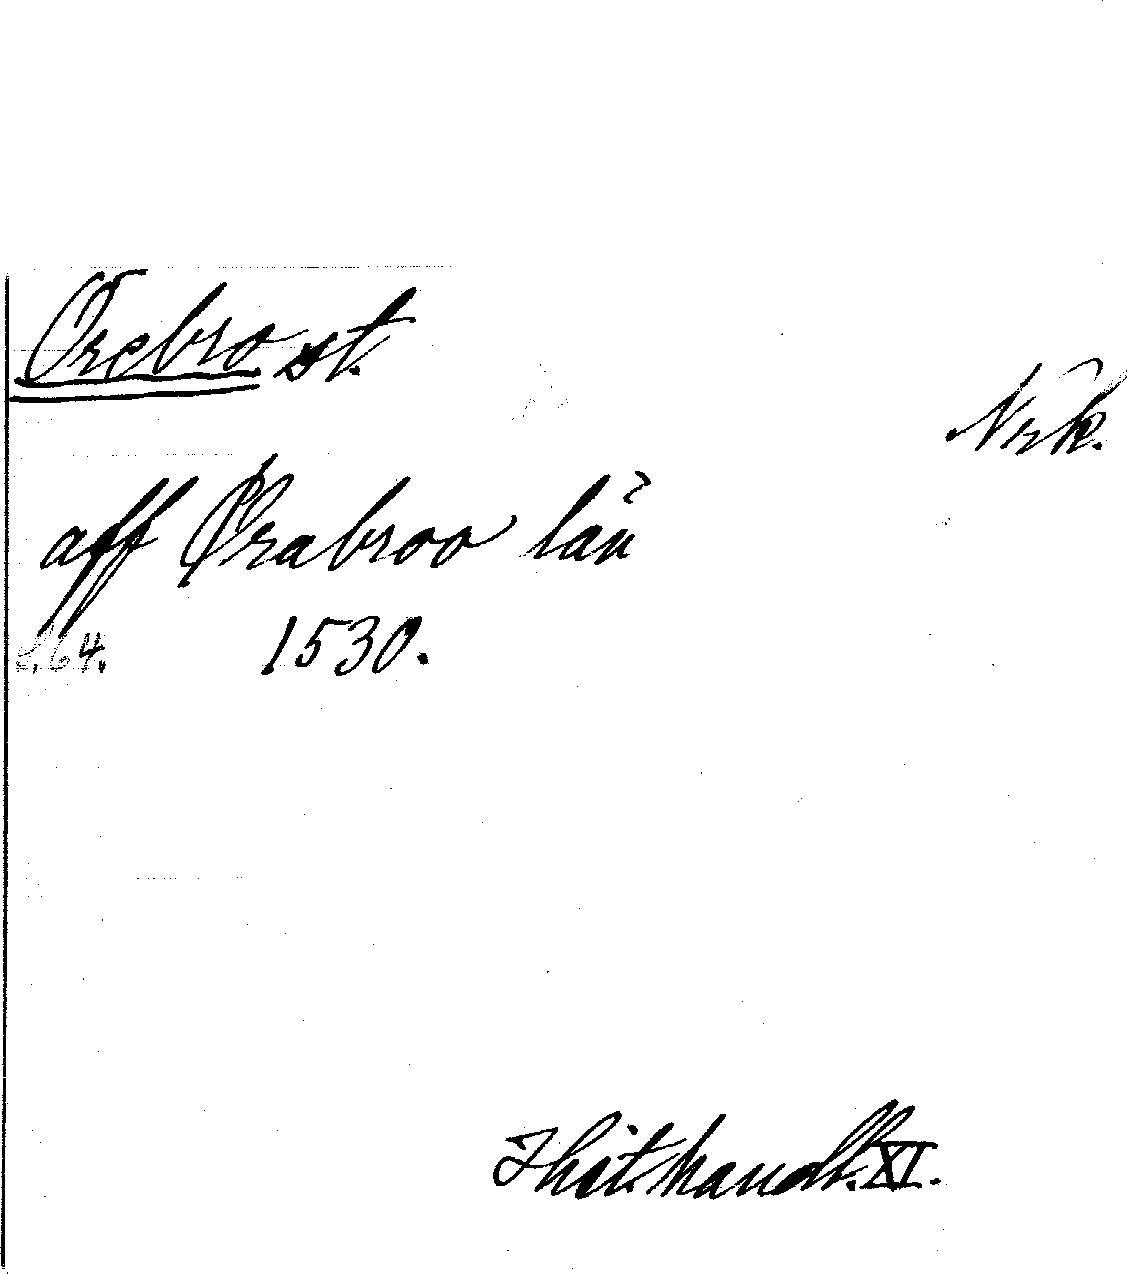 Örebro st.
Nrk.
aff Ørabroo län
s. 64. 1530.
Hist. handl. XI.